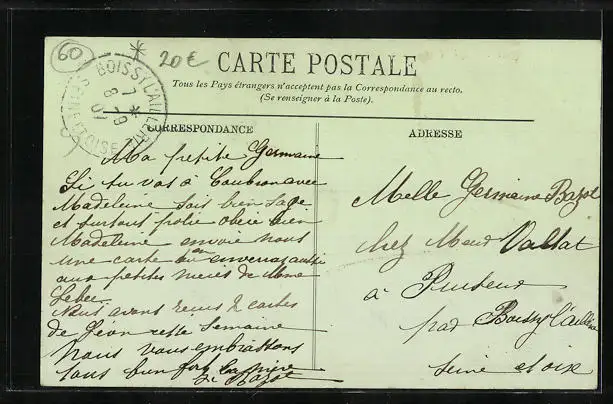 60
20€
BOISSY L'AILLERIE
SEINE-ET-OISE
CARTE POSTALE
Tous les Pays étrangers n'acceptent pas la Correspondance au recto.
(Se renseigner à la Poste).
CORRESPONDANCE
ADRESSE
Ma petite Germaine
Si tu vas à avec
Madeleine sois bien sage
et surtout polie obeie bien
Madeleine envoie nous
une carte tu en enverras aussi
aux petites nieces de Mme
Nous avons recus 2 cartes
de Léon cette Semaine
Nous vous embrassons
tous bien fort
Bazot
Melle Germaine Bazot
chez Valtat
à Puiseux
par Boissy l'Aillerie
Seine et oix